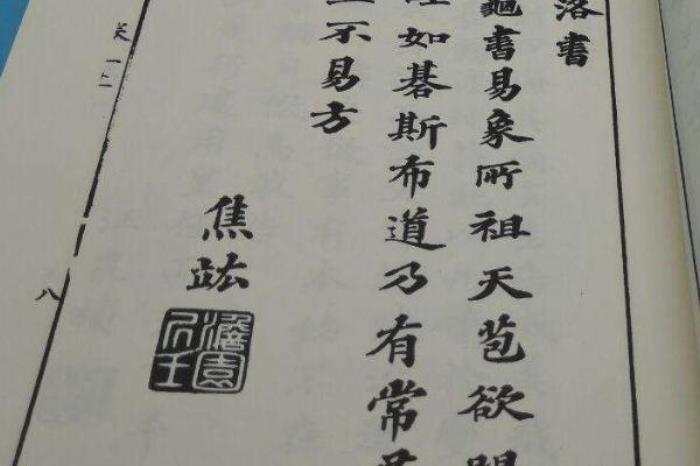 洛書
龜書易象所祖天苞欲
如碁斯布道乃有常
不易方
焦竑
澹園
八